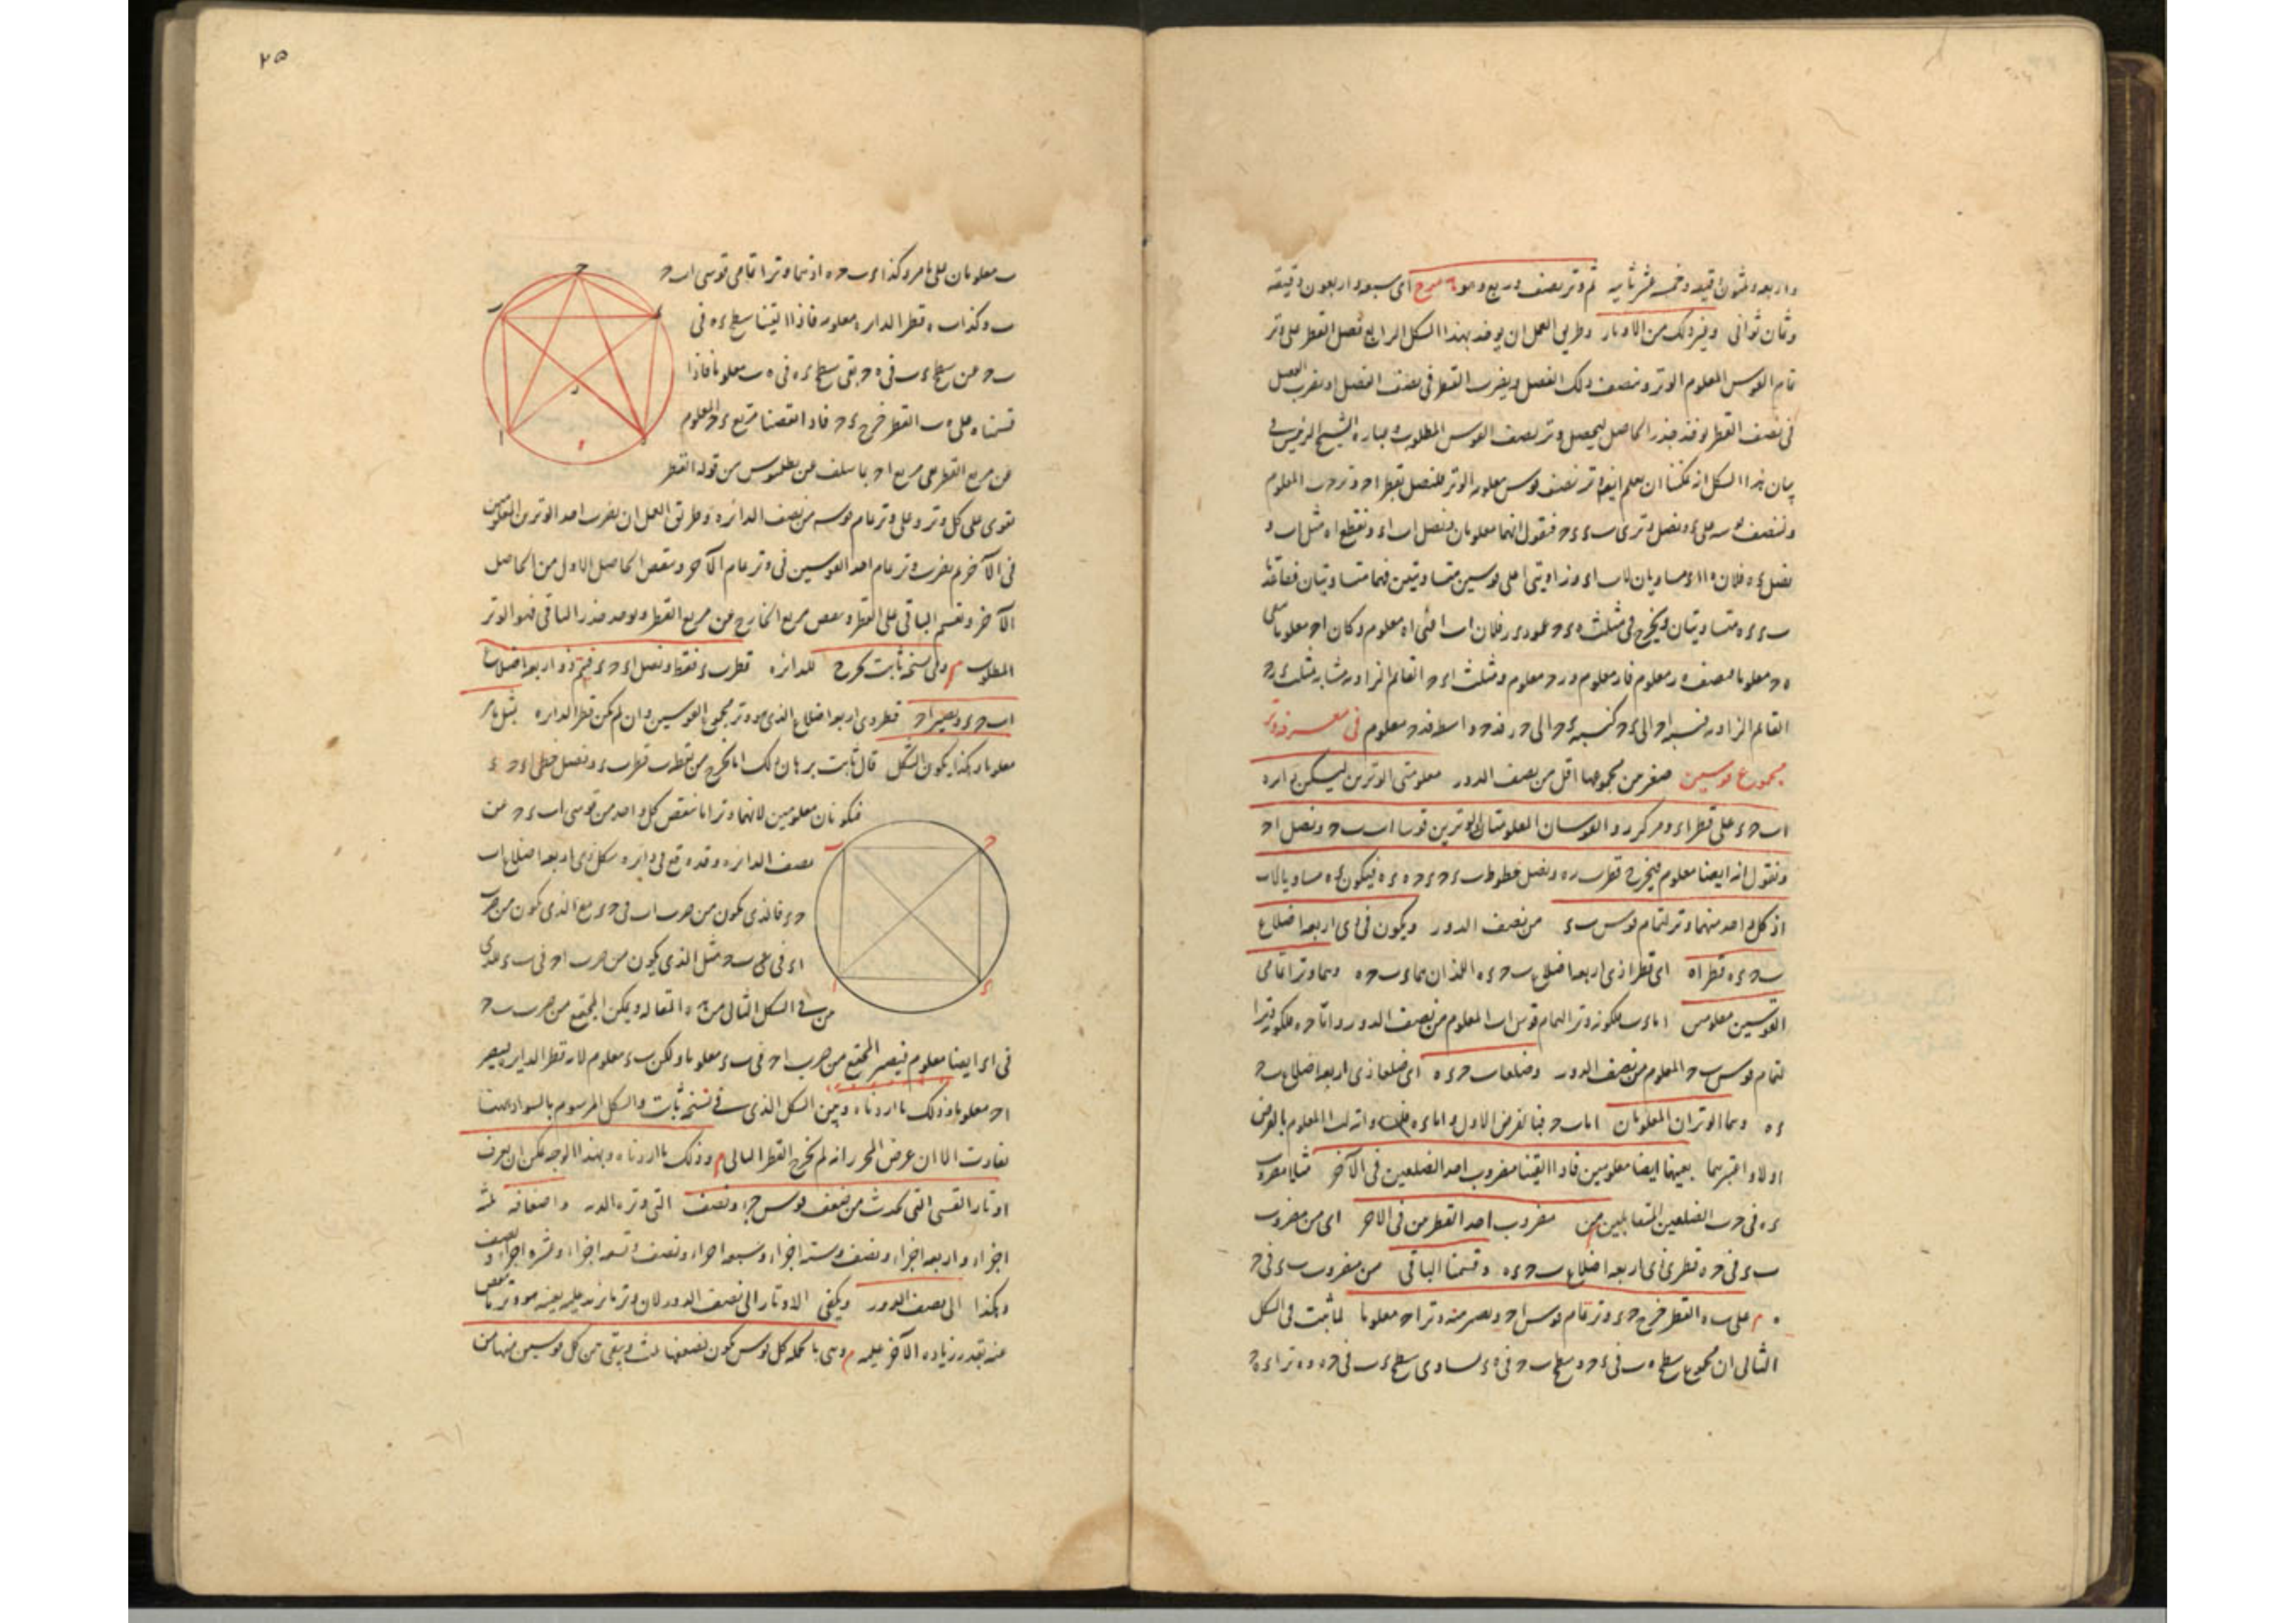 واربعه وثلثون دقيقه وخمسه عشر ثانيه ثم وتر نصف وربع وهو اى سبعه واربعون دقيقه
وثمان ثوانى وغير ذلك من الاوتار وطريق العمل ان يوخذ بهذا الشكل الرابع فضل القطر على وتر
تمام القوس المعلوم الوتر وننصف ذلك الفضل ويضرب القطر فى نصف الفضل او يضرب الفضل
فى نصف القطر يوخذ جذر الحاصل ليحصل وتر نصف القوس المطلوب وعباره الشيخ الرئيس فى
بيان هذا الشكل انه يمكننا ان نعلم ايضا وتر نصف قوس معلومه الوتر فلنصل بقطر اح وتر حب المعلوم
وننصف قوسه على ء ونصل وترى ب ء ء ح فنقول انهما معلومان ونصل اب اء ونقطع اه مثل اب و
نصل ء ه فلان ه ا اء مساويان لاب اء وزاويتى ا على قوسين متساويتين فهما متساويتان فقاعدتا
ب ء ء ه متساويتان ونخرج فى مثلث ه ء ح عمود ء ر فلان اب اعنى اه معلوم وكان اح معلوما يبقى
ه ح معلوما فنصفه ر معلوم فار معلوم ور ح معلوم ومثلث ا ء ح القائم الزاويه مشابه مثلث ء ر ح
القائم الزاويه فنسبه اح الى ء ح كنسبه ء ح الى ح ر فء ح واسطه فء ح معلوم فى معرفه وتر
مجموع قوسين صغر من مجموعها اقل من نصف الدور معلومتى الوترين ليكن دايره
اب ح ء على قطر اء ومركز ر والقوسان المعلومتا الوترين قوسا اب ب ح ونصل اح
ونقول انه ايضا معلوم فيخرج قطر ب ر ه ونصل خطوط ب ء ح ء ح ه ء ه فيكون ء ه مساويا لاب
اذ كل واحد منهما وتر لتمام قوس ب ء من نصف الدور ويكون فى ذى اربعه اضلاع
ب ح ء ه قطراه اى قطرا ذى اربعه اضلاع ب ح ء ه اللذان هما ء ب ح ه وهما وترا تمامى
القوسين معلومين اما ء ب فلكونه وترا لتمام قوس اب المعلوم من نصف الدور واما ح ه فلكونه وترا
لتمام قوس ب ح المعلوم من نصف الدور وضلعا ب ح ء ه اى ضلعا ذى اربعه اضلاع ب ح
ء ه وهما الوتران المعلومان اما ب ح فبالفرض الاول واما ء ه فلمساواته لاب المعلوم بالفرض
اولا واعتبرهما بعينها ايضا معلومين فاذا القينا مضروب احد الضلعين فى الآخر مثلا مضروب
ء ه فى ح ب الضلعين المتقابلين من مضروب احد القطرين فى الاخر اى من مضروب
ب ء فى ح ه قطرى ذى اربعه اضلاع ب ح ء ه وقسمنا الباقى من مضروب ب ء فى ح
ه على ب ه القطر خرج ح ء وتر تمام قوس اح ويصير منه وتر اح معلوما لما ثبت فى الشكل
الثانى ان مجموع سطح ه ب فى ء ح وسطح ب ح فى ه ء يساوى سطح ء ب فى ح ه ووترا ء ه ح
٢٥
ب معلومان على ما مر وكذا ء ب ح ه اذ هما وترا تمامى قوسى اب ح
ب وكذا ب ه قطر الدايره معلوم فاذا القينا سطح ء ه فى
ب ح من سطح ء ب فى ه ح بقى سطح ء ح فى ه ب معلوما فاذا
قسمناه على ه ب القطر خرج ء ح فاذا نقصنا مربع ء ح المعلوم
من مربع القطر بقى مربع اح بما سلف عن بطلميوس من قوله القطر
يقوى على كل وتر وعلى وتر تمام قوسه من نصف الدائره وطريق العمل ان يضرب احد الوترين المعلومين
فى الآخر ثم يضرب وتر تمام احد القوسين فى وتر تمام الآخر وينقص الحاصل الاول من الحاصل
الآخر ونقسم الباقى على القطر وينقص مربع الخارج من مربع القطر ويوخذ جذر الباقى فهو الوتر
المطلوب م وفى نسخه ثابت نخرج للدائره قطر ب ء فقط ونصل اء ح ء فيتم ذو اربعه اضلاع
اب ح ء ويصير اح قطر ذى اربعه اضلاع الذى هو وتر مجموع القوسين وان لم يكن قطر الدايره بمثل ما مر
معلوما وهكذا يكون الشكل قال ثابت برهان ذلك انا نخرج من نقطه ب قطر ب ء ونصل خطى اء ح ء
فيكونان معلومين لانهما وترا ما ينقص كل واحد من قوسى اب ب ح عن
نصف الدائره وقد وقع فى دايره شكل ذى اربعه اضلاع اب
ح ء فالذى يكون من ضرب اب فى ح ء مع الذى يكون من ضرب
اء فى ب ح مثل الذى يكون من ضرب اح فى ب ء للذى
بين فى الشكل الثانى من هذه المقاله ويكون المجتمع من ضرب ب ح
فى اء ايضا معلوم فيصير المجتمع من ضرب اح فى ب ء معلوما ولكن ب ء معلوم لانه قطر الدايره فيصير
اح معلوما وذلك ما اردناه وبين الشكل الذى فى نسخه ثابت والشكل المرسوم بالسواد ههنا
تفاوت الا ان غرض المحرر انه لم يخرج القطر الثانى م وذلك ما اردناه وبهذا الوجه يمكن ان يعرف
اوتار القسى التى تحدث من تضعف قوس جزء ونصف التى وتره الدر واضعافه ثلثه
اجزاء واربعه اجزاء ونصف وسته اجزاء وسبعه اجزاء ونصف وتسعه اجزاء وعشره اجزاء ونصف
وهكذا الى نصف الدور ويكفى الاوتار الى نصف الدور لان وتر ما يزيد عليه بعينه هو وتر ما ينقص
عنه بقدر زياده الآخر عليه م وهى بالجمله كل قوس يكون نصفها ثلث ويبقى من كل قوسين منها من